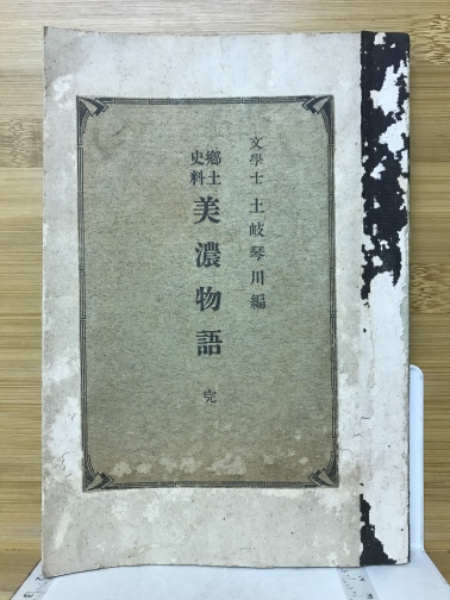 文學士 土岐琴川編
鄕土史料 美濃物語 完